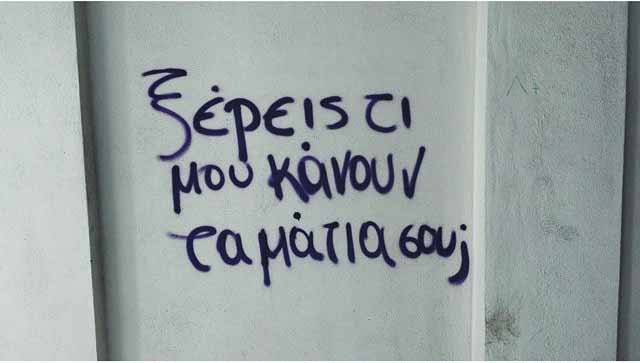 ξέρεις τι
μου κάνουν
τα μάτια σου;